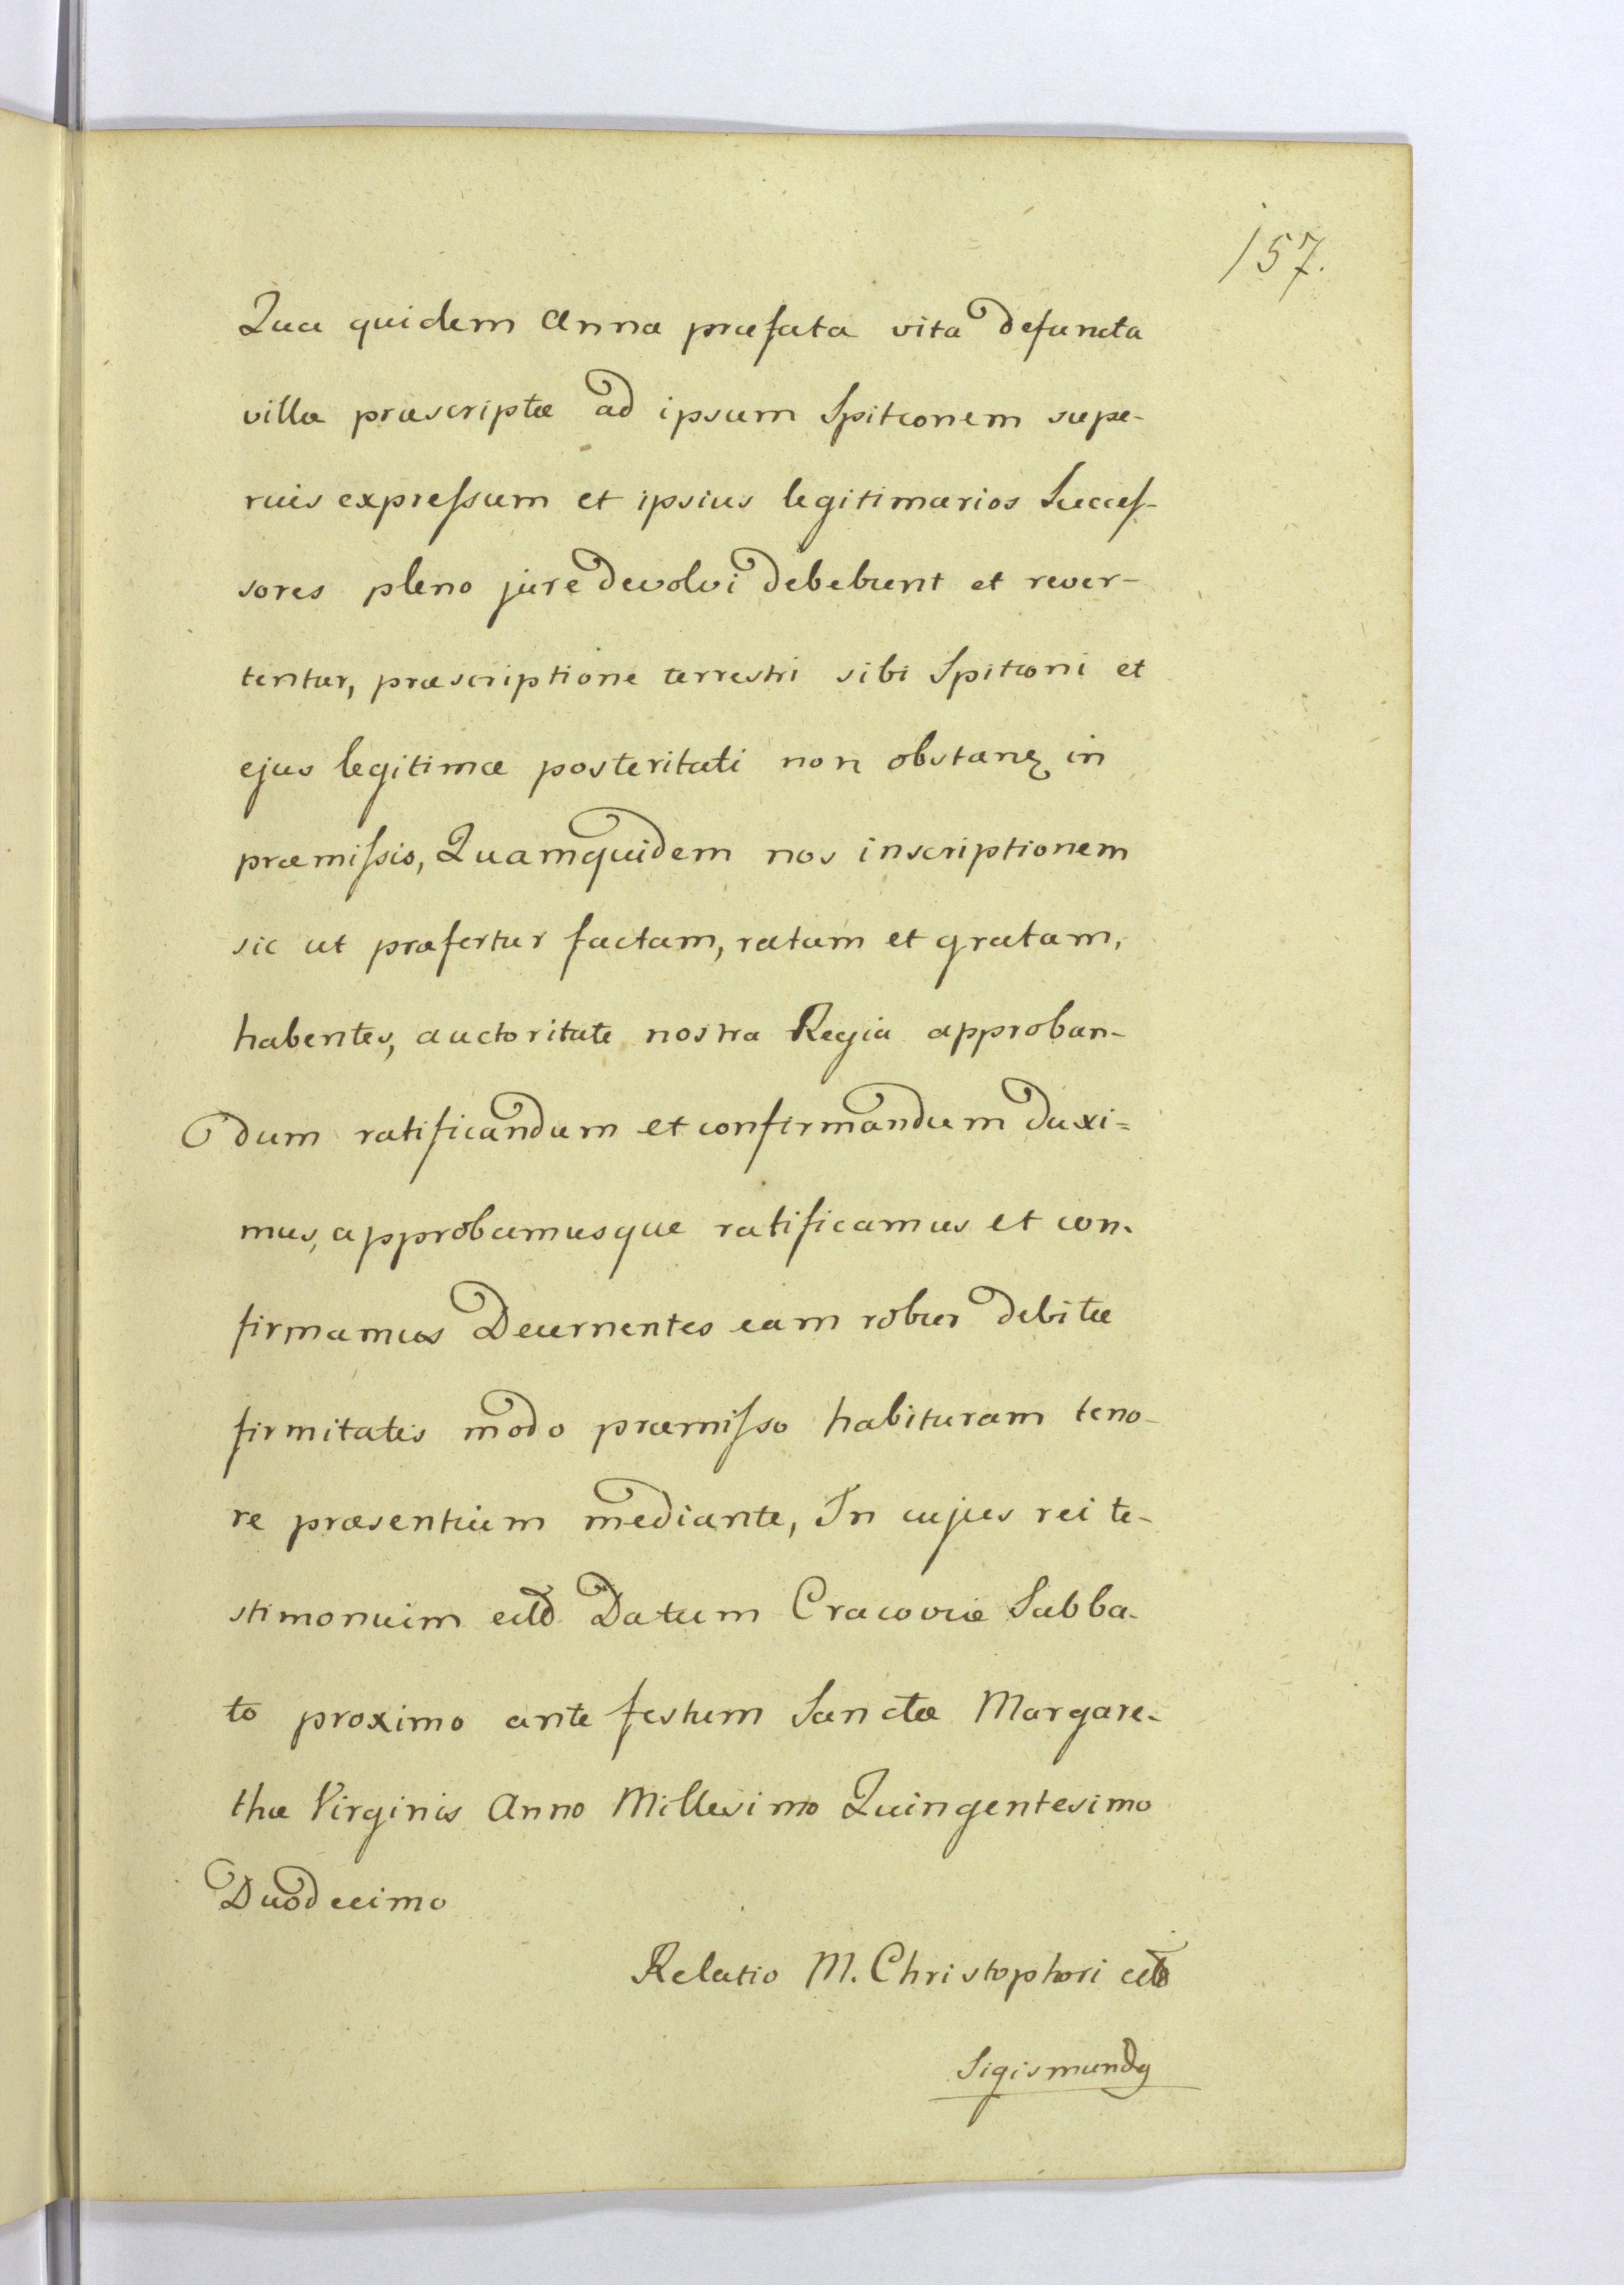 157.
Qua quidem Anna præfata vita defuncta
villæ præscriptæ ad ipsum Spitconem supe-
rius expreſsum et ipsius legitimarios Succeſ-
sores pleno jure devolvi debebunt et rever-
tentur, præscriptione terrestri sibi Spitconi et
ejus legitimæ posteritati non obstanꝫ in
præmiſsis, Quamquidem nos inscriptionem
sic ut præfertur factam, ratam et gratam,
habentes, auctoritate nostra Regia approban-
dum ratificandum et confirmandum duxi=
mus, approbamusque ratificamus et con-
firmamus Decernentes eam robur debitæ
firmitatis modo præmiſso habituram teno-
re præsentium mediante, In cujus rei te-
stimonium Datum Cracoviæ Sabba-
to proximo ante festum Sanctæ Margare-
thæ Virginis Anno Millesimo Quingentesimo
Duodecimo
Relatio M. Christophori
Sigismundꝯ